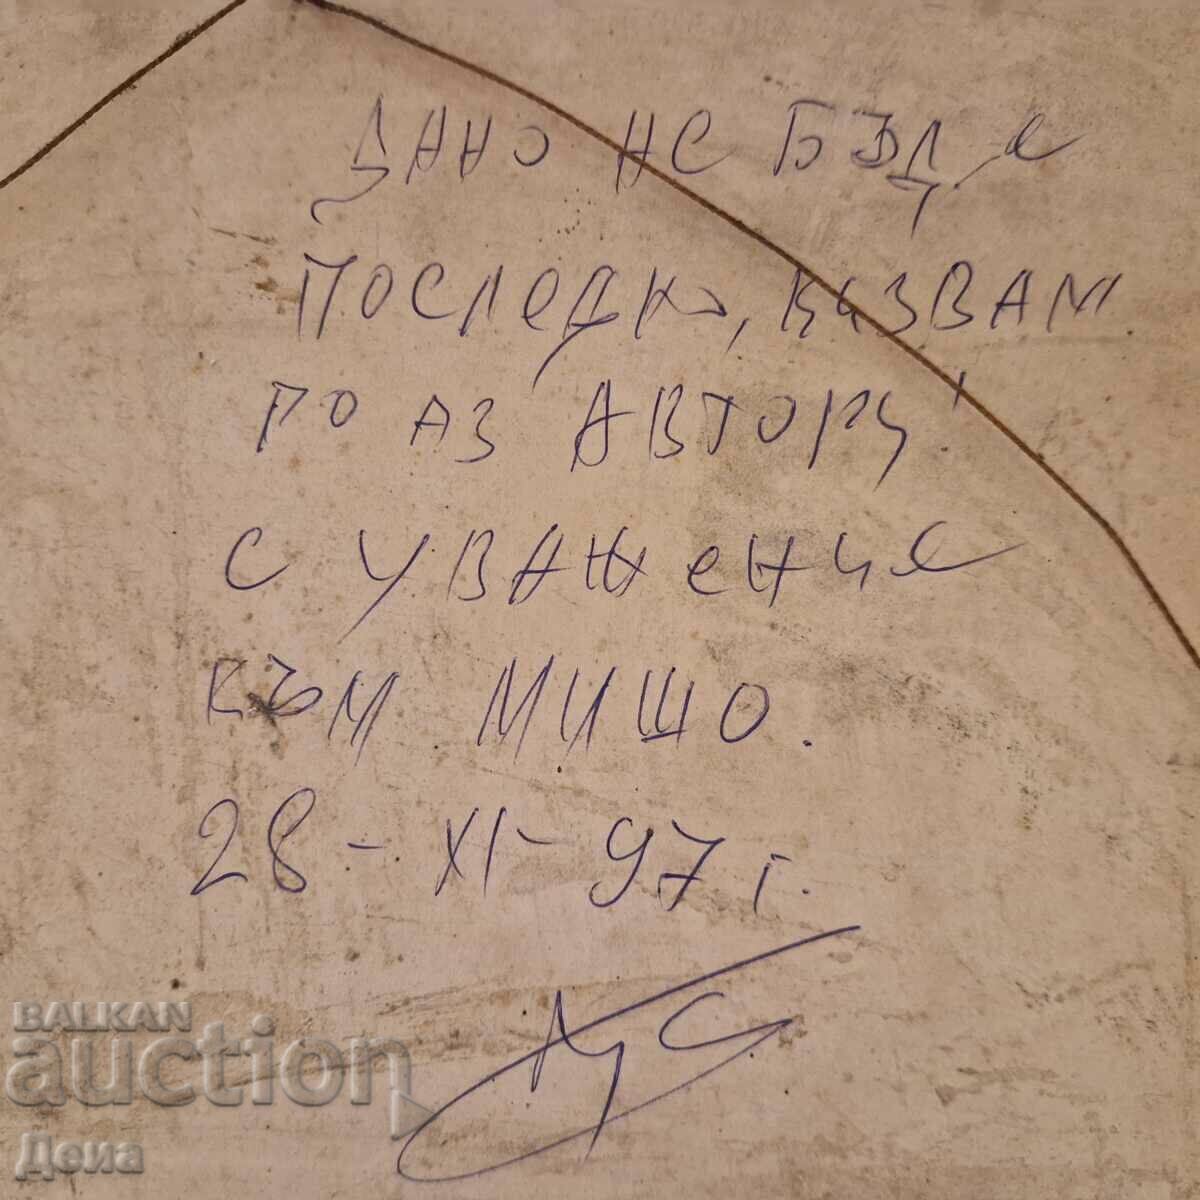 ДАНО НЕ БЪДЕ
ПОСЛЕДНО, КАЗВАМ
ГО АЗ АВТОРЪ!
С УВАЖЕНИЕ
КЪМ МИШО.
28 - XI - 97 г.
BALKAN
auction
Деиа